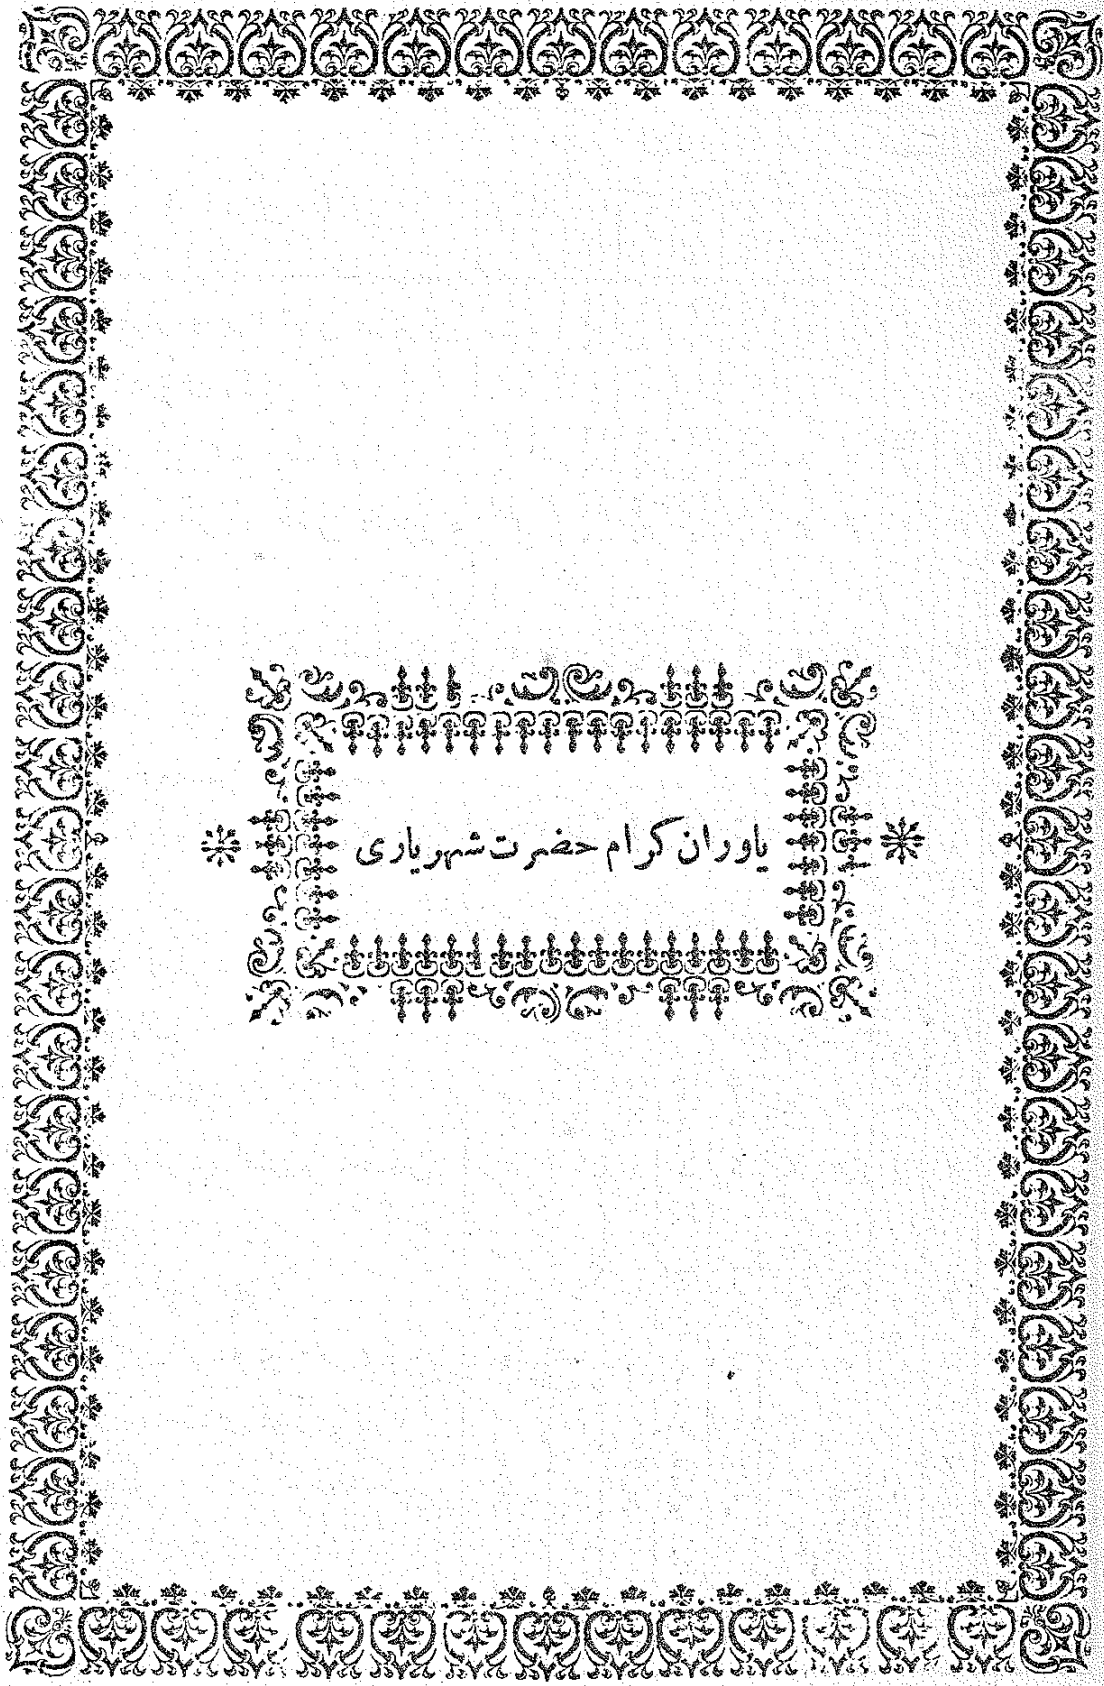 یاوران کرام حضرت شهریاری